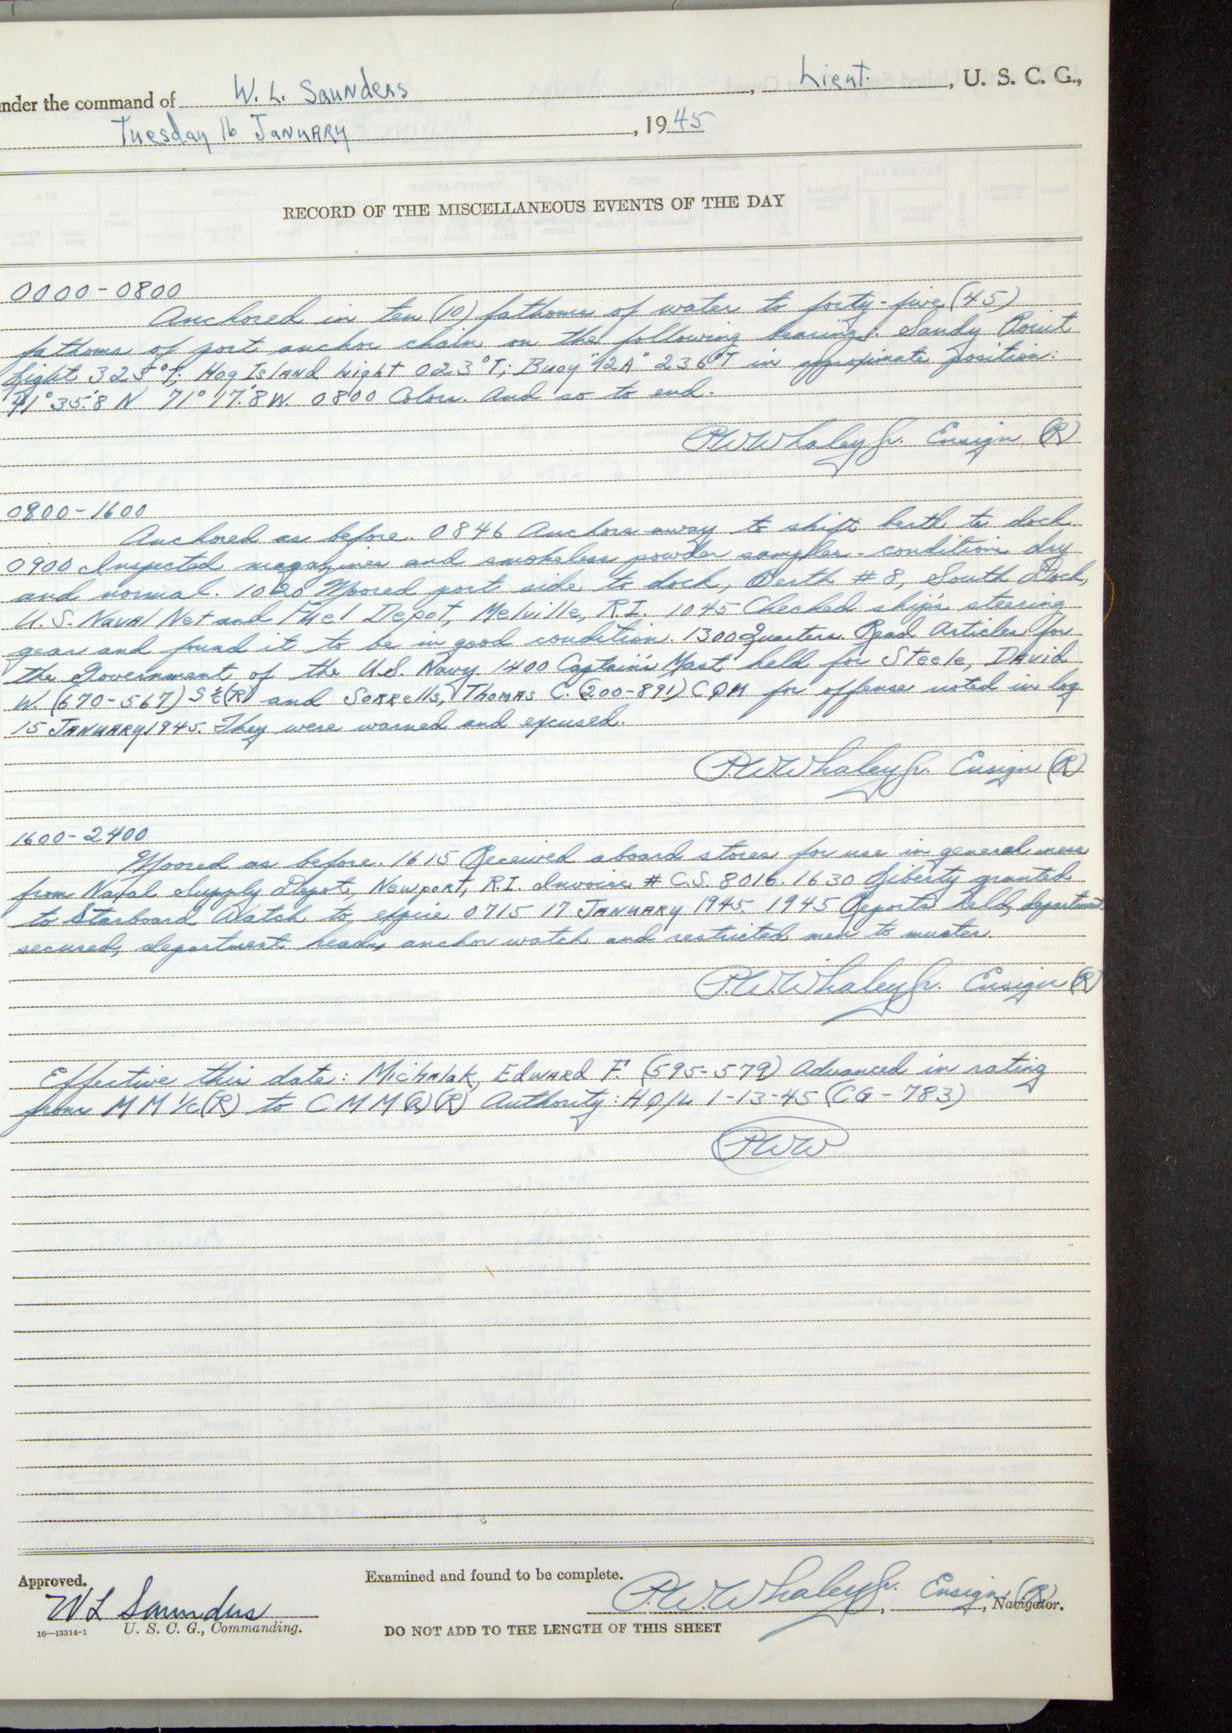 under the command of W. L. Saunders, Lieut., U. S. C. G.,
Tuesday 16 January, 1945
RECORD OF THE MISCELLANEOUS EVENTS OF THE DAY
0000-0800
Anchored in ten (10) fathoms of water to forty-five (45)
fathoms of port anchor chain on the following bearings: Sandy Point
Light 325°T; Hog Island Light 023°T; Buoy "12A" 236°T in approximate position:
41°35'.8 N 71°17'.8 W. 0800 Colors. And so to end.
P.W. Whaley Jr. Ensign (R)
0800-1600
Anchored as before. 0846 Anchors away to shift berth to dock
0900 Inspected magazines and smokeless powder samples - condition dry
and normal. 1020 Moored port side to dock, Berth #8, South Dock,
U.S. Naval Net and Fuel Depot, Melville, R.I. 1045 Checked ship's steering
gear and found it to be in good condition. 1300 Quarters. Read Articles for
the Government of the U.S. Navy. 1400 Captain's Mast held for Steele, David
W. (670-567) (R) and Sorrells, Thomas C. (200-891) CQM for offense noted in log
15 January 1945. They were warned and excused.
P.W. Whaley Jr. Ensign (R)
1600-2400
Moored as before. 1615 Received aboard stores for use in general mess
from Naval Supply Depot, Newport, R.I. Invoice # C.S. 8016. 1630 Liberty granted
to Starboard Watch to expire 0715 17 January 1945. 1945 Reports held, department
secured, department heads, anchor watch and restricted men to muster.
P.W. Whaley Jr. Ensign (R)
Effective this date: Michalak, Edward F. (595-579) Advanced in rating
from MM1/c(R) to CMM(a)(R) Authority: 1-13-45 (CG-783)
PWW
Approved.
W L Saunders
U. S. C. G., Commanding.
16—13314-1
Examined and found to be complete.
P.W. Whaley Jr., Ensign (R), Navigator.
DO NOT ADD TO THE LENGTH OF THIS SHEET